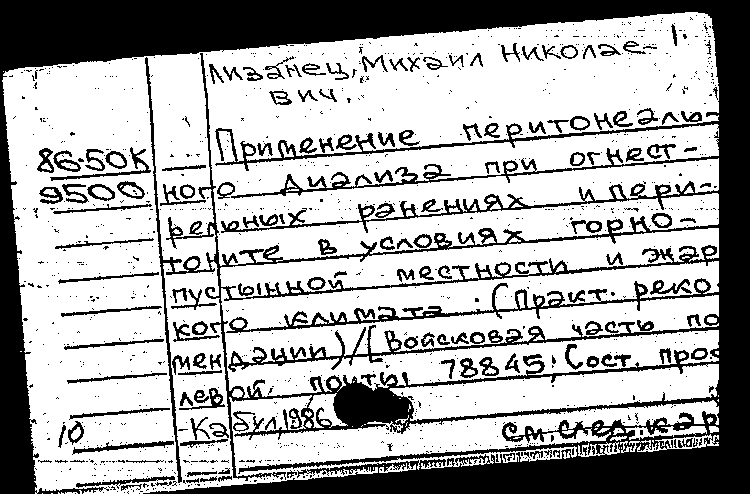 1.
Лизанец, Михаил Николае-
вич.
86-50К Применение перитонеаль-
9500 ного диализа при огнест-
рельных ранениях и пери-
тоните в условиях горно-
пустынной местности и жар
кого климата : (Практ. реко-
мендации) / [Войсковая часть по
левой почты 78845; Сост. проф
- Кабул, 1986
10 см. след. кар